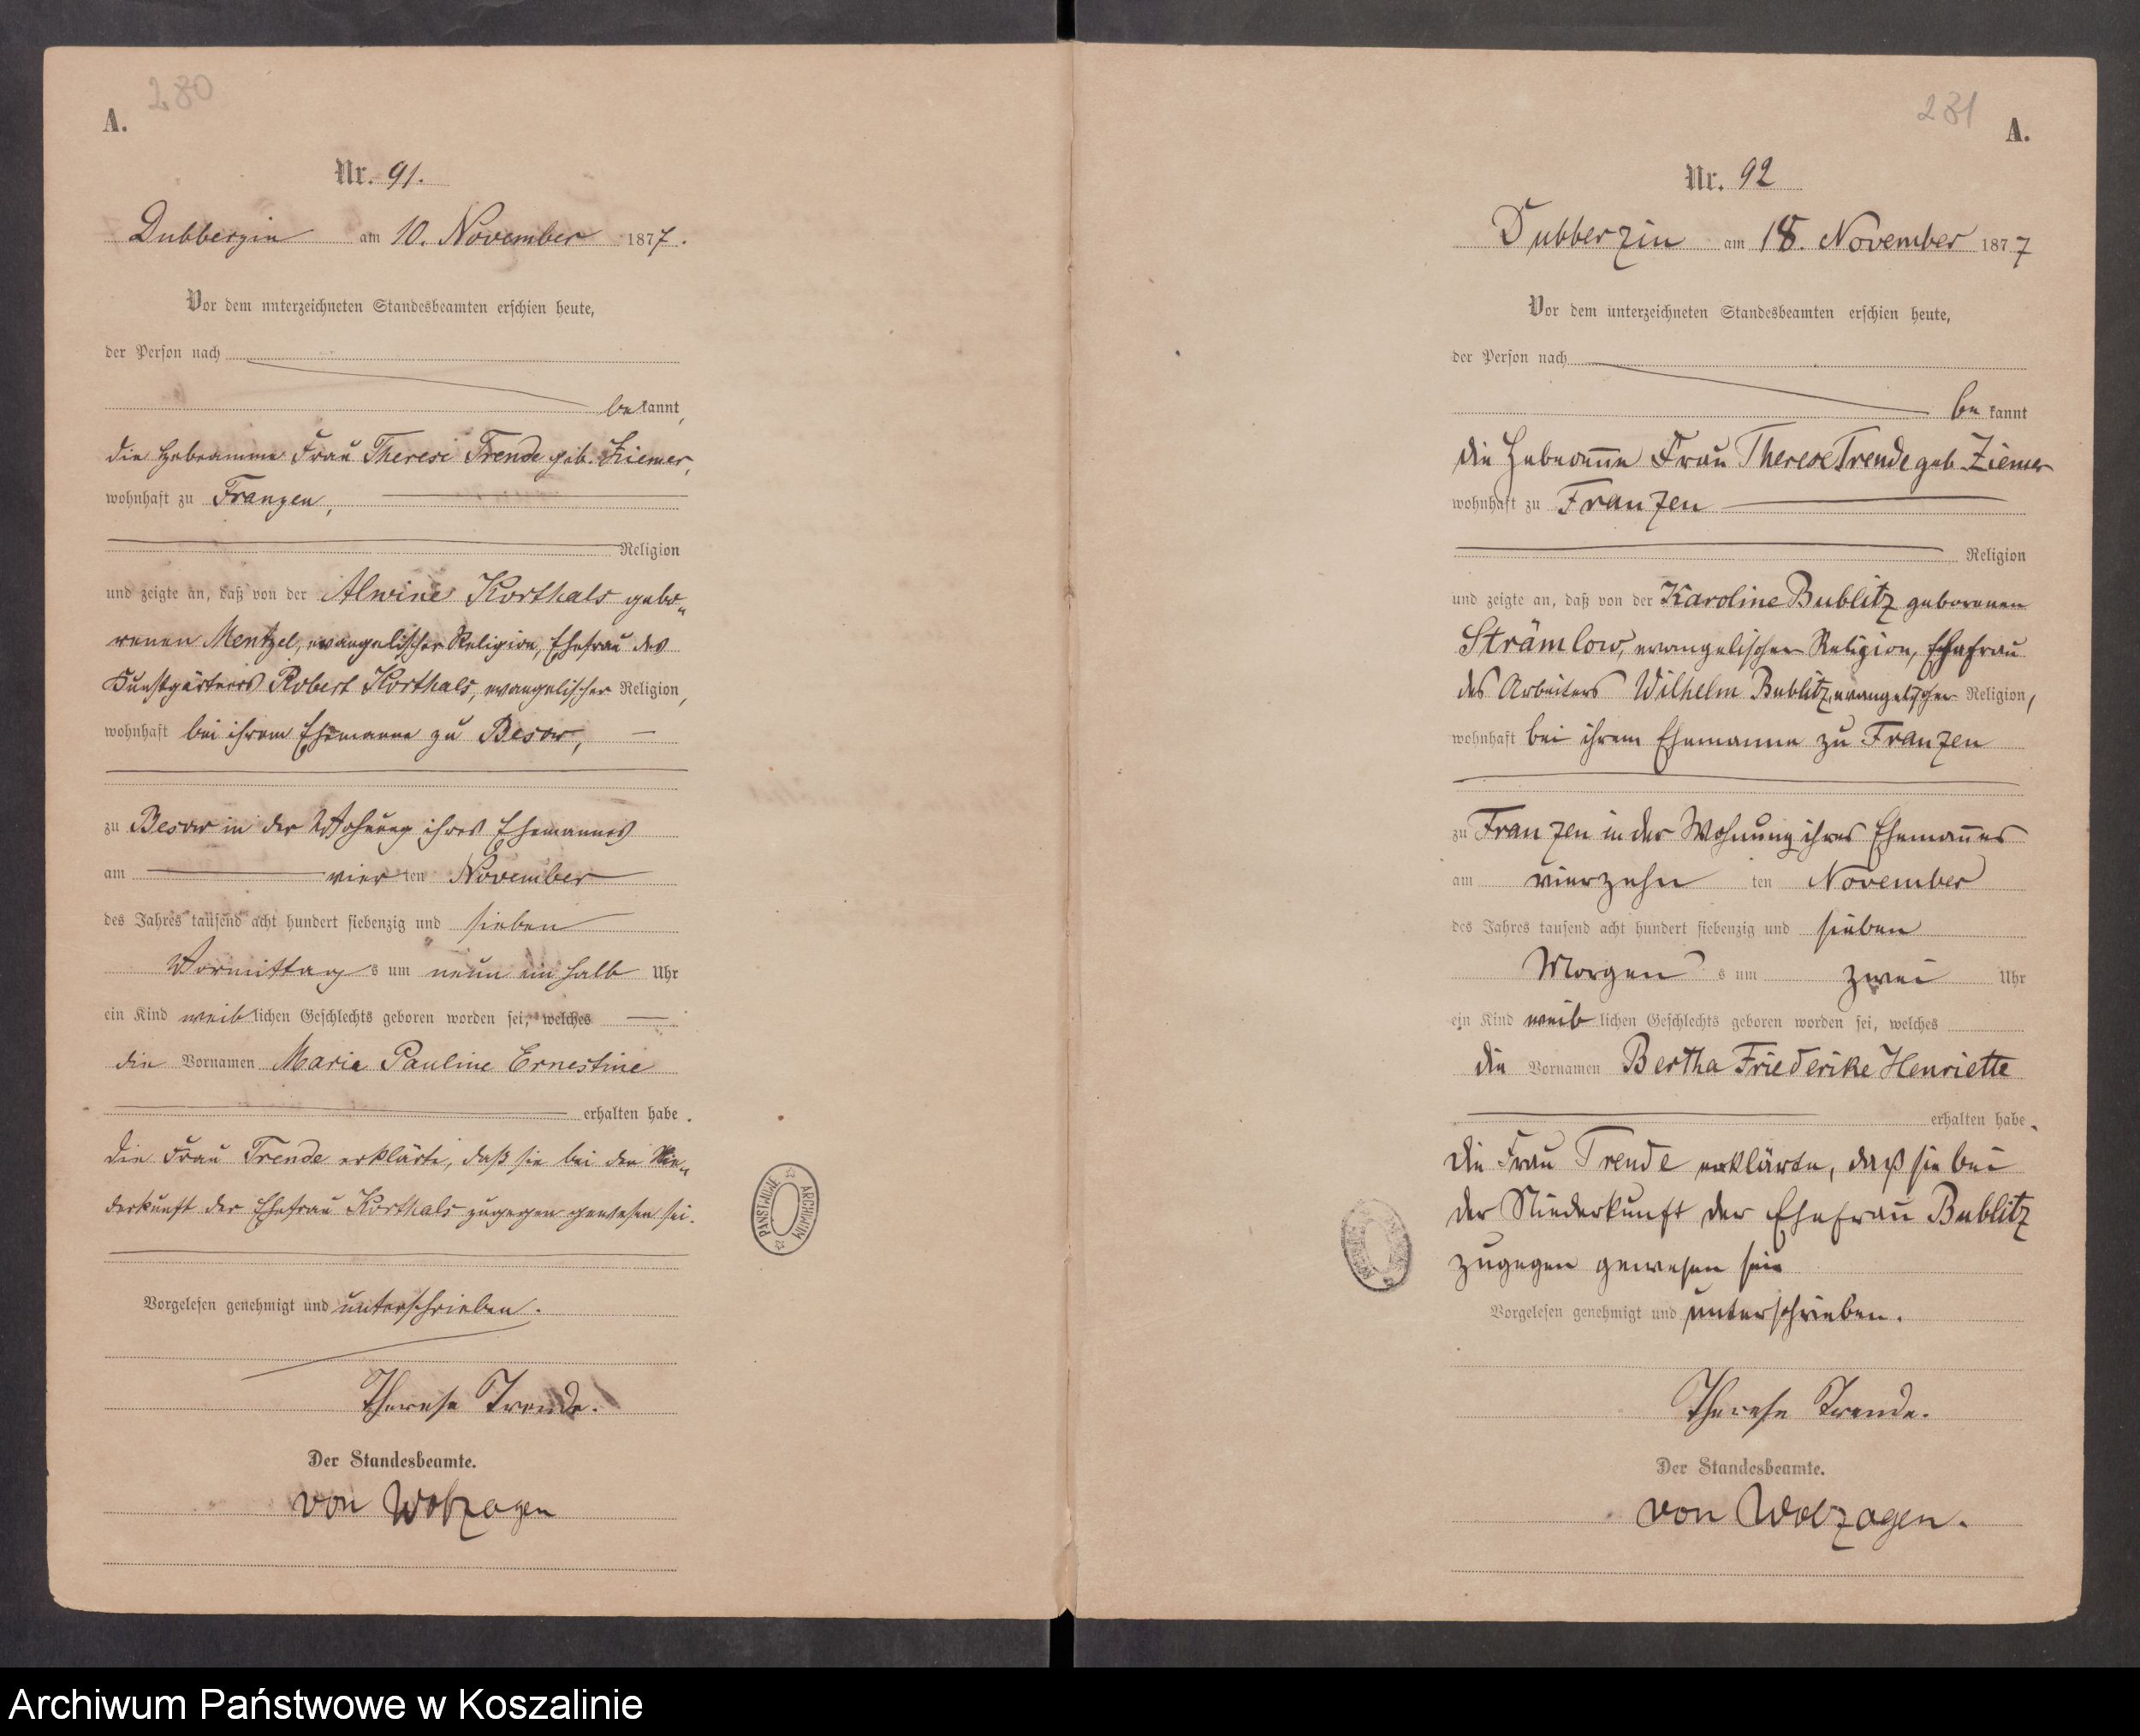 280
A.
Nr. 91.
Dubberzin am 10. November 1877.
Vor dem unterzeichneten Standesbeamten erschien heute,
der Person nach
bekannt,
die Hebeamme Frau Therese Trende geb. Ziemer,
wohnhaft zu Franzen,
Religion
und zeigte an, daß von der Alwine Korthals gebo-
renen Mentzel, evangelischer Religion, Ehefrau des
Kunstgärtners Robert Korthals, evangelischer Religion,
wohnhaft bei ihrem Ehemanne zu Besow,
zu Besow in der Wohnung ihres Ehemannes
am vierten November
des Jahres tausend acht hundert siebenzig und sieben
Vormittags um neun ein halb Uhr
ein Kind weiblichen Geschlechts geboren worden sei, welches
die Vornamen Maria Pauline Ernestine
erhalten habe.
Die Frau Trende erklärte, daß sie bei der Nie-
derkunft der Ehefrau Korthals zugegen gewesen sei.
Vorgelesen genehmigt und unterschrieben.
Therese Trende.
Der Standesbeamte.
von Wolzogen
ARCHIWUM PAŃSTWOWE
231
A.
Nr. 92
Dubberzin am 18. November 1877
Vor dem unterzeichneten Standesbeamten erschien heute,
der Person nach
bekannt
die Hebeamme Frau Therese Trende geb Ziemer
wohnhaft zu Franzen
Religion
und zeigte an, daß von der Karoline Bublitz geborenen
Strämlow, evangelischer Religion, Ehefrau
des Arbeiters Wilhelm Bublitz, evangelischer Religion,
wohnhaft bei ihrem Ehemanne zu Franzen
zu Franzen in der Wohnung ihres Ehemannes
am vierzehnten November
des Jahres tausend acht hundert siebenzig und sieben
Morgens um zwei Uhr
ein Kind weiblichen Geschlechts geboren worden sei, welches
die Vornamen Bertha Friederike Henriette
erhalten habe.
Die Frau Trende erklärte, daß sie bei
der Niederkunft der Ehefrau Bublitz
zugegen gewesen sei
Vorgelesen genehmigt und unterschrieben.
Therese Trende.
Der Standesbeamte.
von Wolzogen.
Archiwum Państwowe w Koszalinie